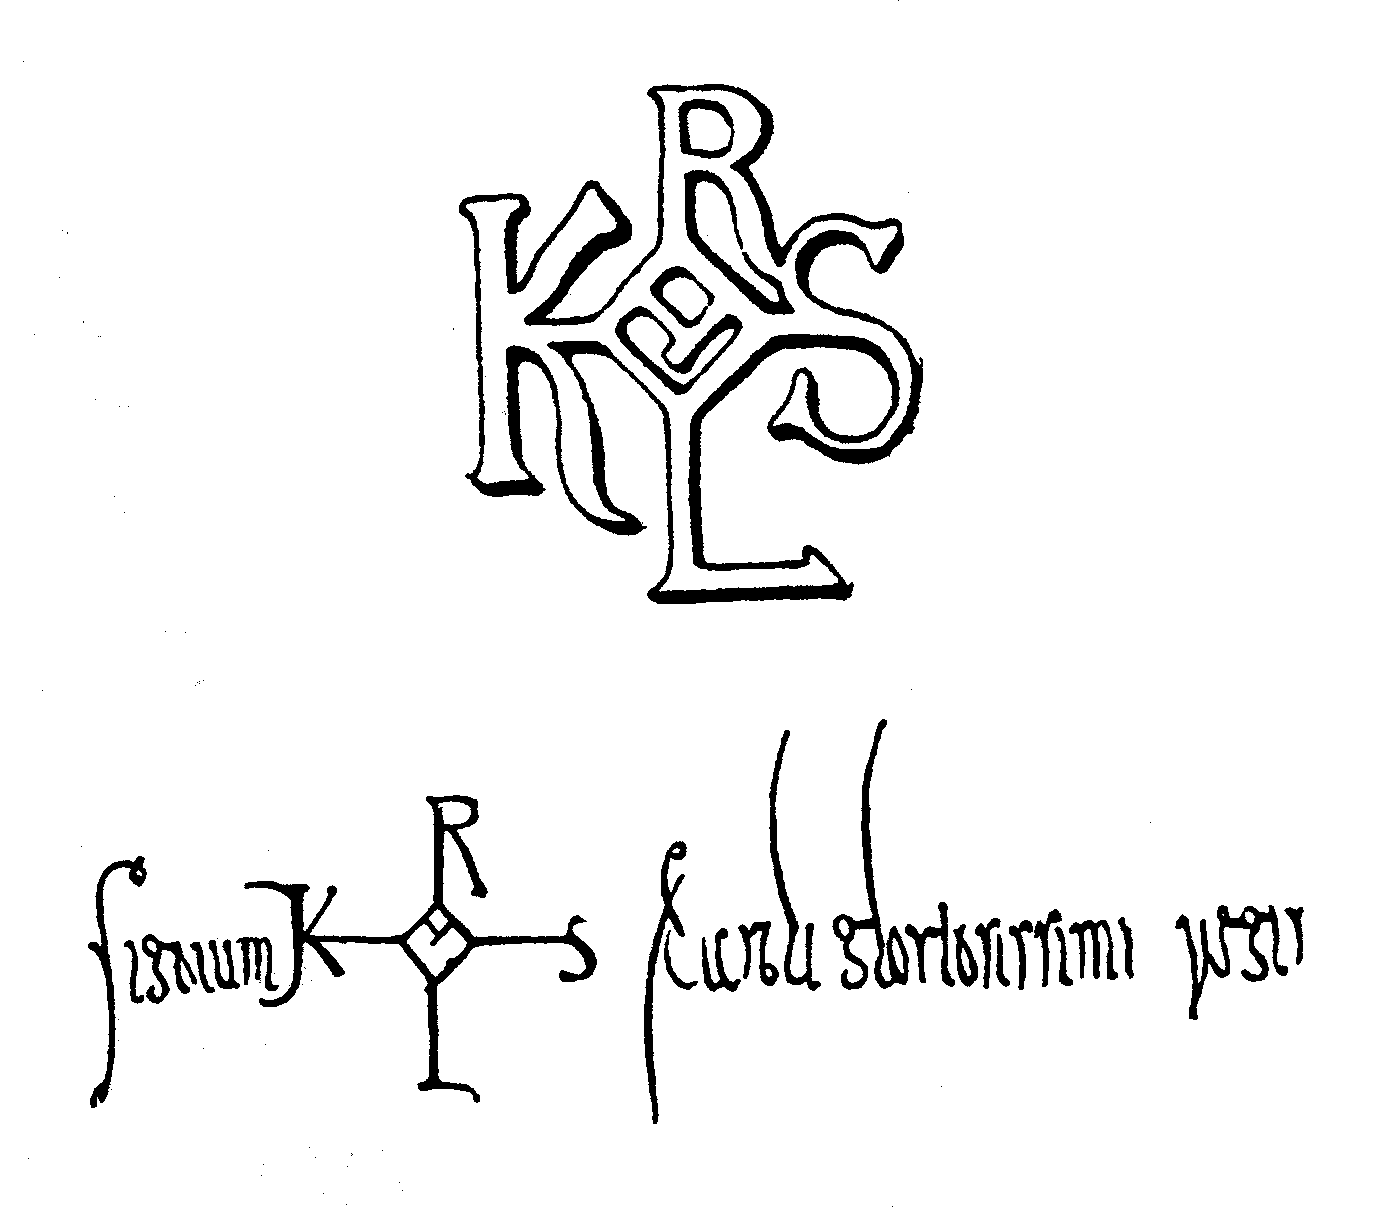 K R S L
Signum K R S L Caroli gloriosissimi regis